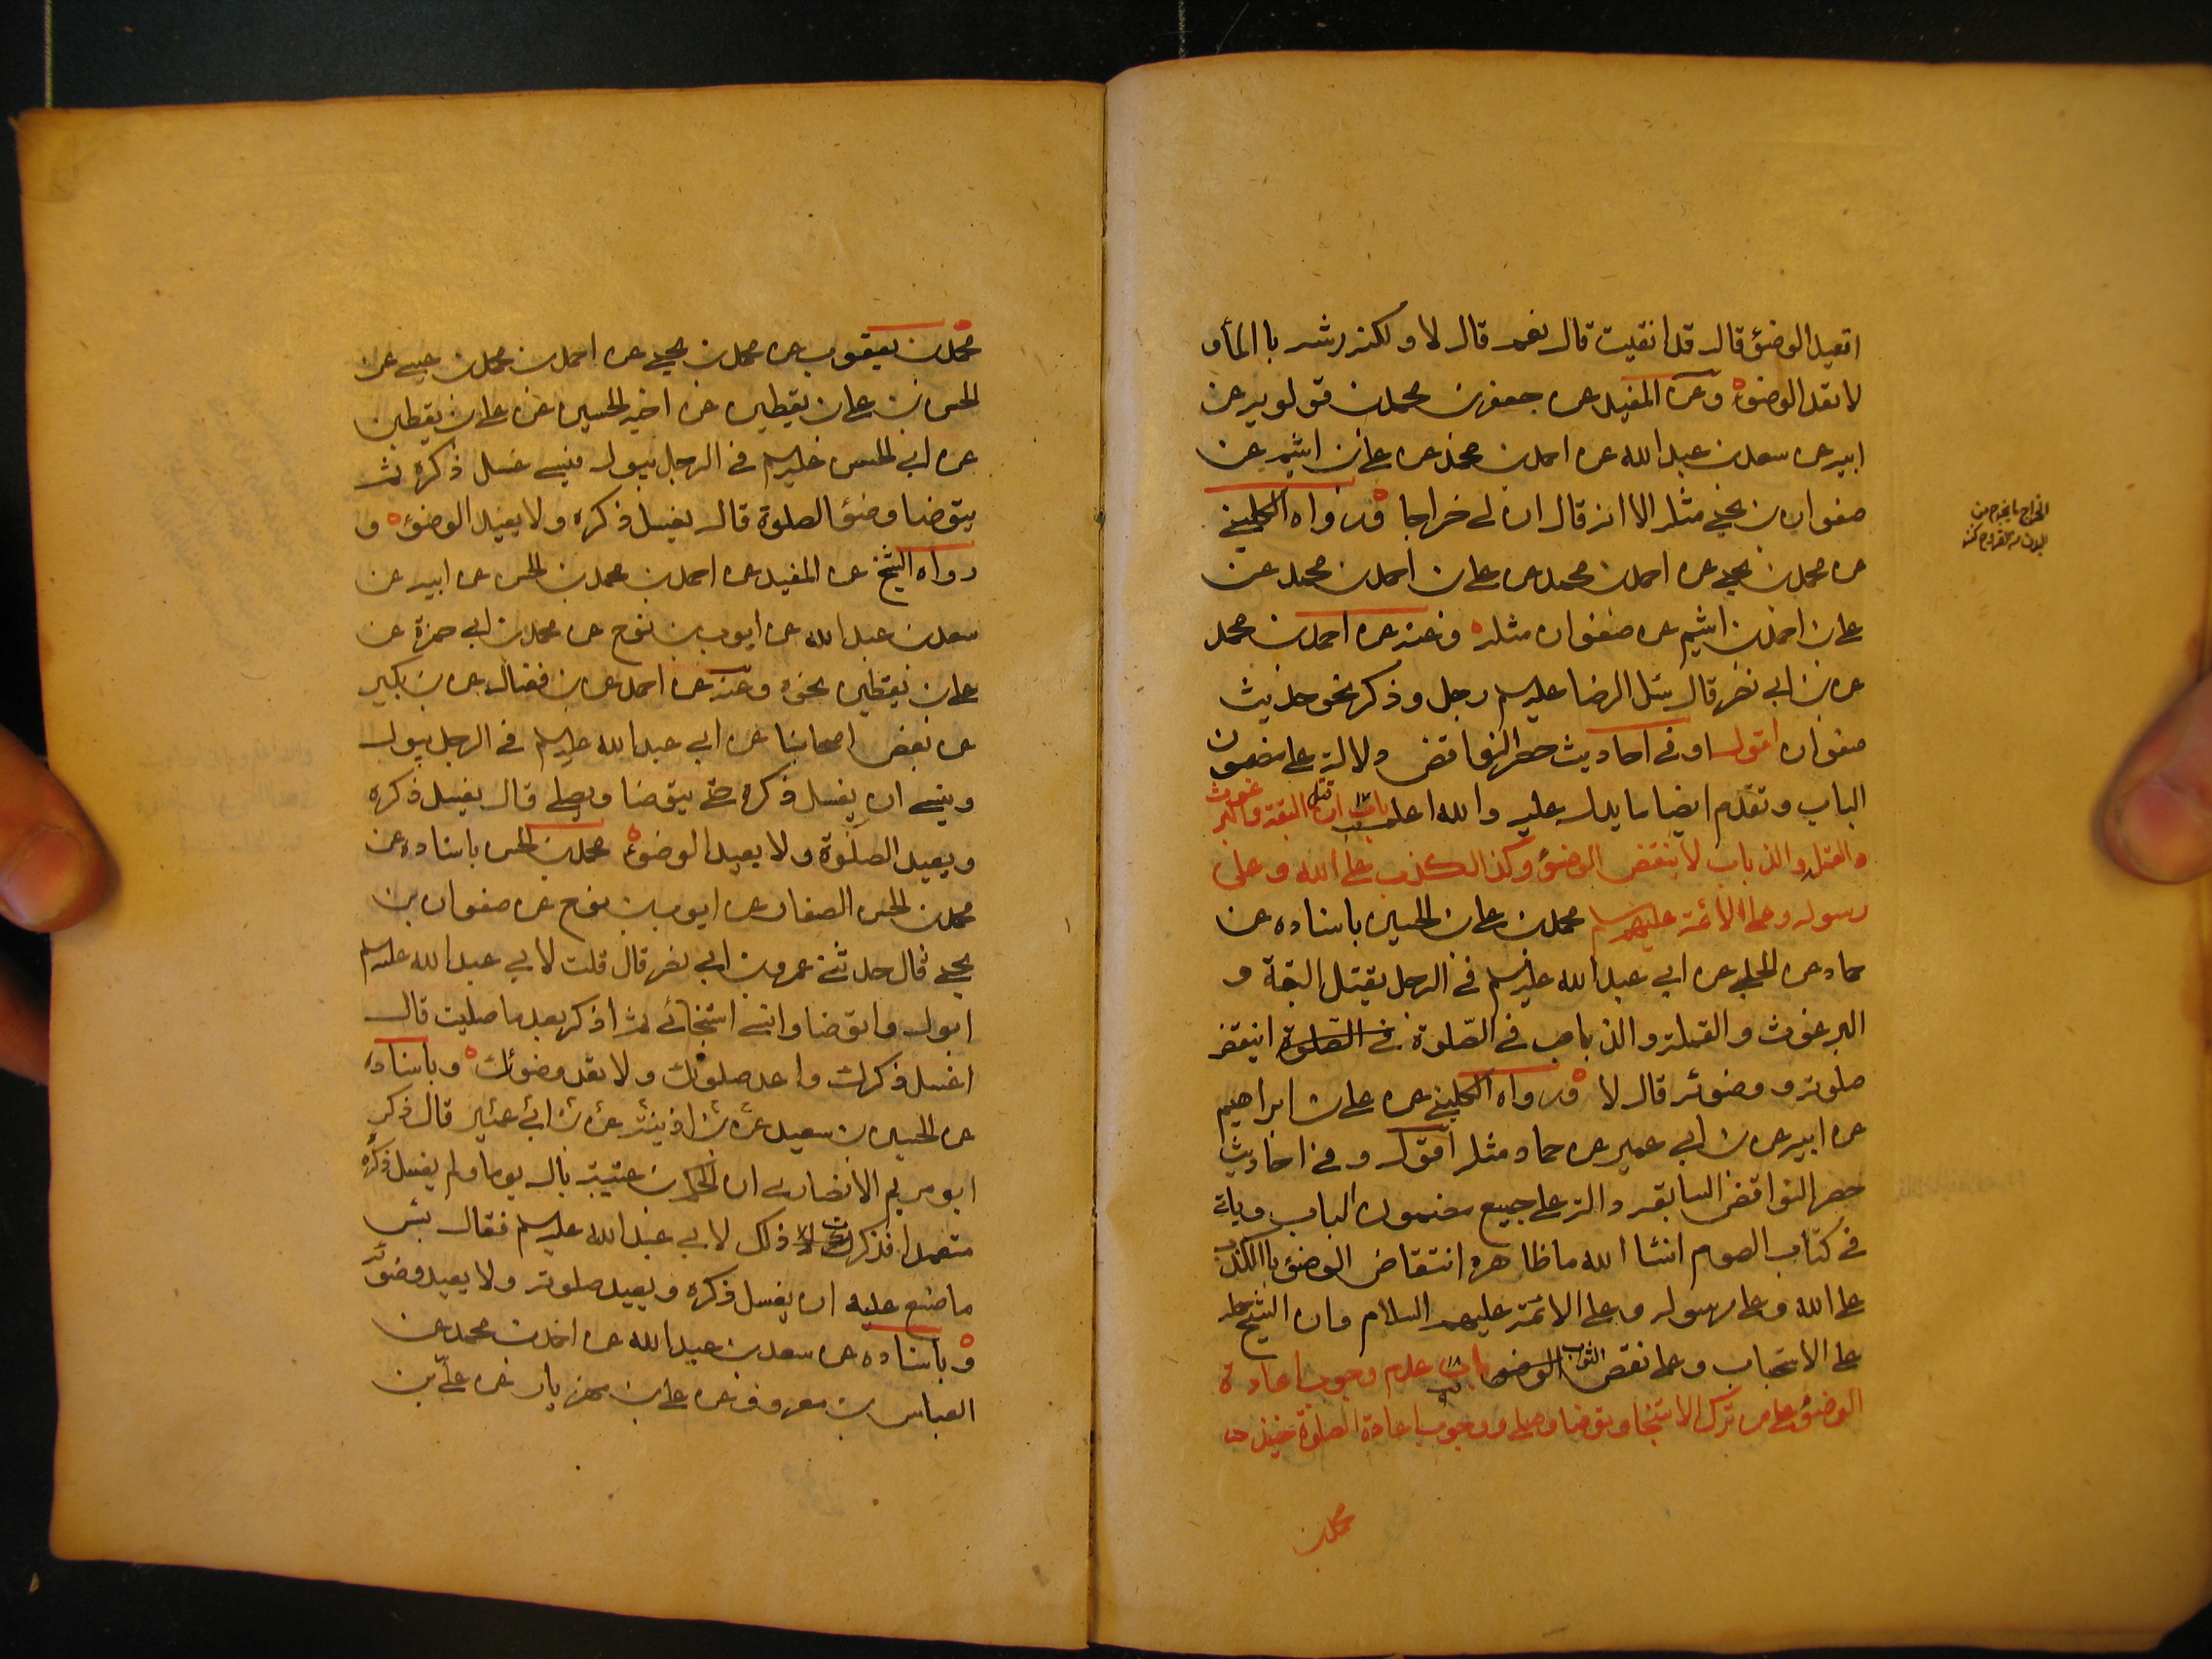 اتعيد الوضوء قال قد انقيت قال نعم قال لا ولكن رشه بالمأ و
لا تعد الوضوء وعن المفيد عن جعفر بن محمد بن قولويه عن
ابيه عن سعد بن عبد الله عن احمد بن محمد عن علي بن اشيم عن
صفوان بن يحيى مثله الا انه قال ان لى خراجا ورواه الكليني
عن محمد بن يحيى عن احمد بن محمد عن علي بن احمد بن محمد عن
علي بن احمد بن اشيم عن صفوان مثله وعنه عن احمد بن محمد
عن بن ابي نصر قال سئل الرضا عليه السلم رجل وذكر نحو حديث
صفوان اقول وفى احاديث حصر النواقض دلالة على مضمون
الباب وتقدم ايضا ما يدل عليه والله اعلم باب ان قتل البقة والبرغوث
والقملة والذباب لا ينقض الوضوء وكذا الكذب على الله وعلى
رسوله وعلى الأئمة عليهم السلم محمد بن علي بن الحسين باسناده عن
حماد عن الحلبي عن ابي عبد الله عليه السلم فى الرجل يقتل البقة و
البرغوث والقملة والذباب فى الصلوة فى الصلوة اينقض
صلوته ووضوئه قال لا ورواه الكليني عن علي بن ابراهيم
عن ابيه عن بن ابي عمير عن حماد مثله اقول وفى احاديث
حصر النواقض السابقه دالة على جميع مضمون الباب وياتى
فى كتاب الصوم انشا الله ما ظاهره انتقاض الوضوء بالكذب
على الله وعلى رسوله وعلى الائمة عليهم السلام وان الشيخ حمله
على الاستحباب وعلى نقص الثواب الوضوء باب عدم وجوب اعادة
الوضوء على من ترك الاستنجا وتوضا وصلى ووجوب اعادة الصلوة حينئذ
محمد بن
الخراج ما يخرج من
البدن من القروح
محمد بن يعقوب عن محمد بن يحيى عن احمد بن محمد بن عيسى عن
الحسن بن علي بن يقطين عن اخيه الحسين عن علي بن يقطين
عن ابي الحسن عليه السلم فى الرجل يبول فينسى غسل ذكره ثم
يتوضا وضوء الصلوة قال يغسل ذكره ولا يعيد الوضوء و
رواه الشيخ عن المفيد عن احمد بن محمد بن الحسن عن ابيه عن
سعد بن عبد الله عن ايوب بن نوح عن محمد بن ابي حمزة عن
علي بن يقطين نحوه وعنه عن احمد عن بن فضال عن بن بكير
عن بعض اصحابنا عن ابي عبد الله عليه السلم فى الرجل يبول
وينسى ان يغسل ذكره حتى يتوضا ويصلى قال يغسل ذكره
ويعيد الصلوة ولا يعيد الوضوء محمد بن الحسن باسناده عن
محمد بن الحسن الصفار عن ايوب بن نوح عن صفوان بن
يحيى قال حدثنى عمرو بن ابي نصر قال قلت لابي عبد الله عليه السلم
ابول واتوضا وانسى استنجائى ثم اذكر بعد ما صليت قال
اغسل ذكرك واعد صلوتك ولا تعد وضوئك وباسناده
عن الحسين بن سعيد عن بن اذينة عن بن ابي عمير قال ذكر
ابو مريم الانصارى ان الحكم بن عتيبة بال يوما ولم يغسل ذكره
متعمدا فذكرت ذلك لابي عبد الله عليه السلم فقال بئس
ما صنع عليه ان يغسل ذكره ويعيد صلوته ولا يعيد وضوئه
وباسناده عن سعد بن عبد الله عن احمد بن محمد عن
العباس بن معروف عن علي بن مهزيار عن علي بن